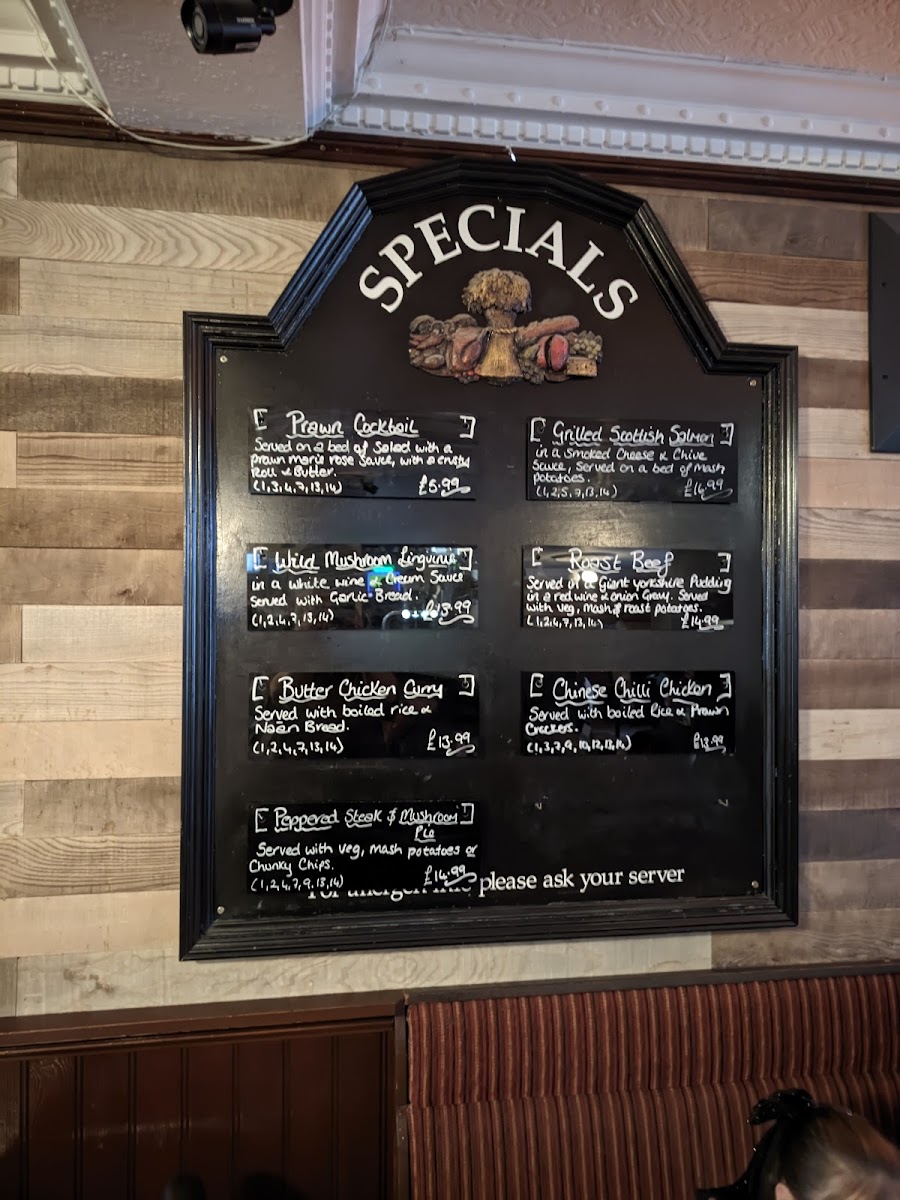 SPECIALS
Prawn Cocktail
Served on a bed of Salad with a
prawn marie rose Sauce, with a crusty
Roll & Butter.
(1,3,4,7,13,14) £5.99
Grilled Scottish Salmon
in a Smoked Cheese & Chive
Sauce, Served on a bed of Mash
potatoes.
(1,2,5,7,13,14) £14.99
Wild Mushroom Linguinie
in a white wine & Cream Sauce
Served with Garlic Bread.
(1,2,4,7,13,14) £13.99
Roast Beef
Served in a Giant yorkshire Pudding
in a red wine & onion Gravy. Served
with veg, Mash & roast potatoes.
(1,2,4,7,13,14) £14.99
Butter Chicken Curry
Served with boiled rice &
Naan Bread.
(1,2,4,7,13,14) £13.99
Chinese Chilli Chicken
Served with boiled Rice & Prawn
Crackers.
(1,3,7,9,10,12,13,14) £13.99
Peppered Steak & Mushroom
Pie
Served with veg, mash potatoes or
Chunky Chips.
(1,2,4,7,9,13,14) £14.99
please ask your server